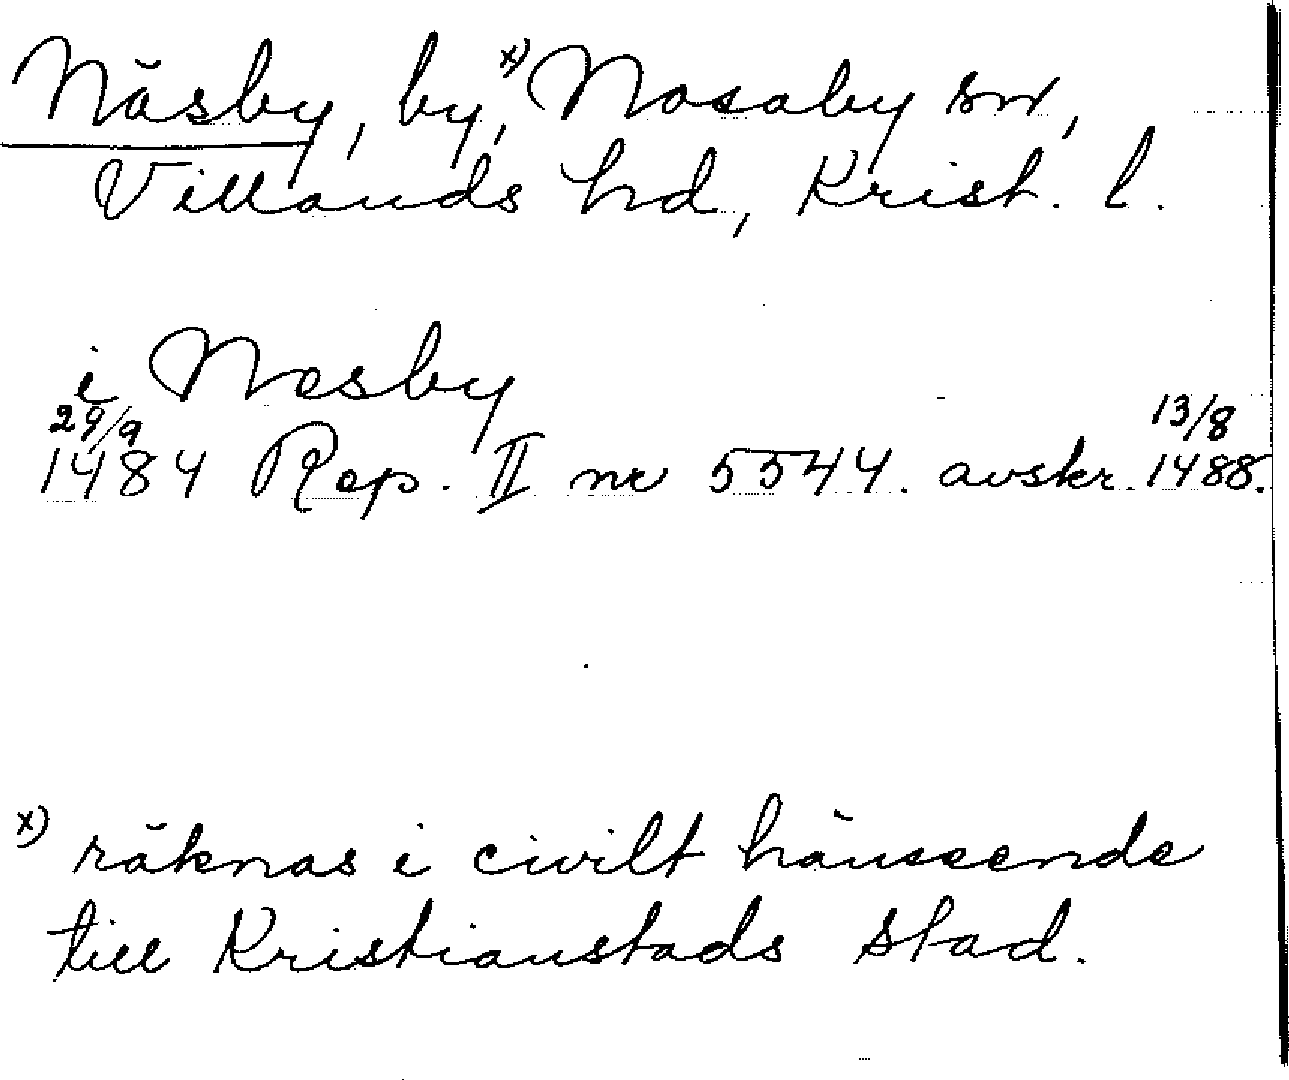 Näsby, by, x) Nosaby sn,
Villands hd, Krist. l.
i Nesby
29/9 13/8
1484 Rep. II nr 5544. avskr. 1488.
x) räknas i civilt hänseende
till Kristianstads stad.